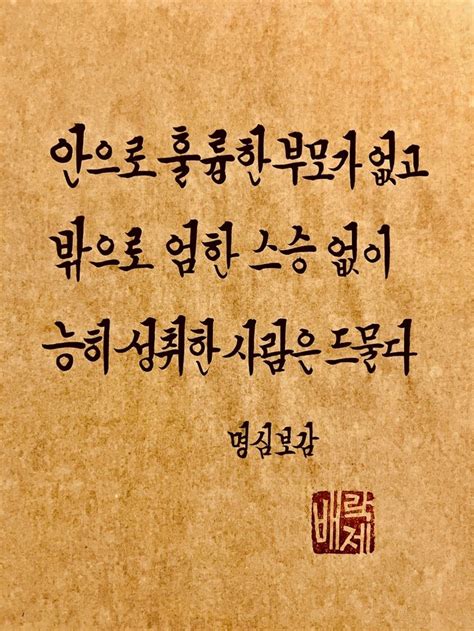 안으로 훌륭한 부모가 없고
밖으로 엄한 스승 없이
능히 성취한 사람은 드물다
명심보감
배락제